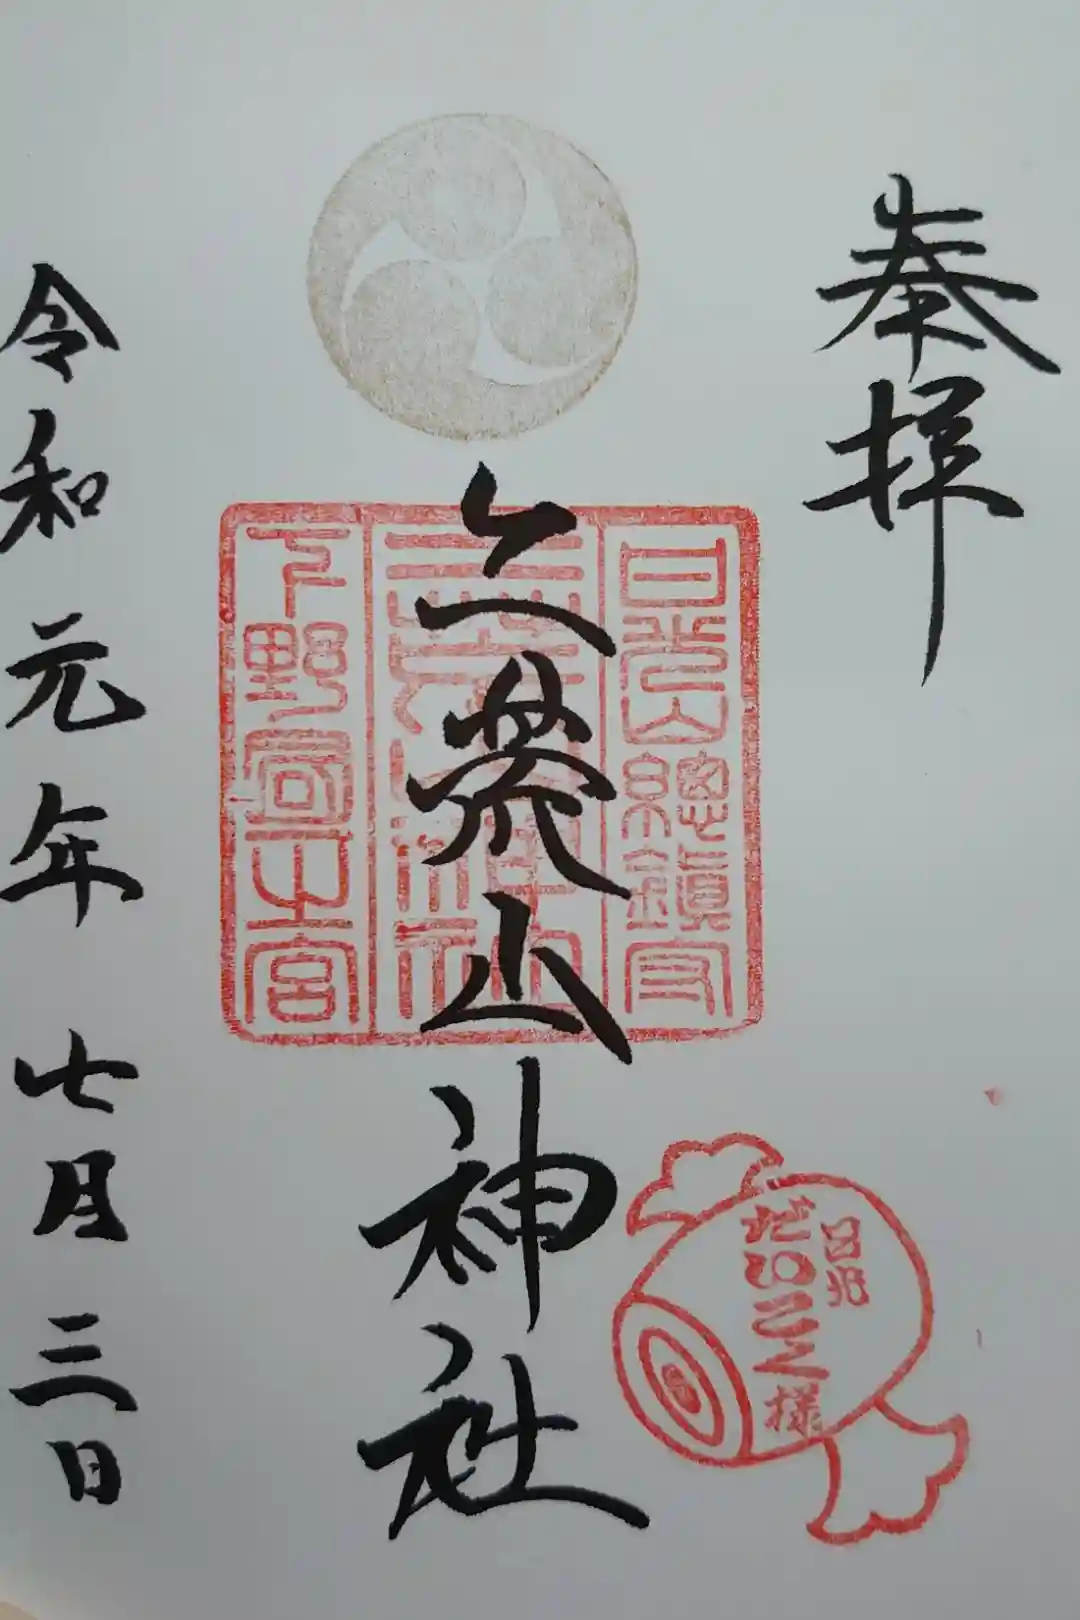 奉拝
日光山總鎮守
二荒山神社
下野國一之宮
日光
だいこく様
令和元年七月三日